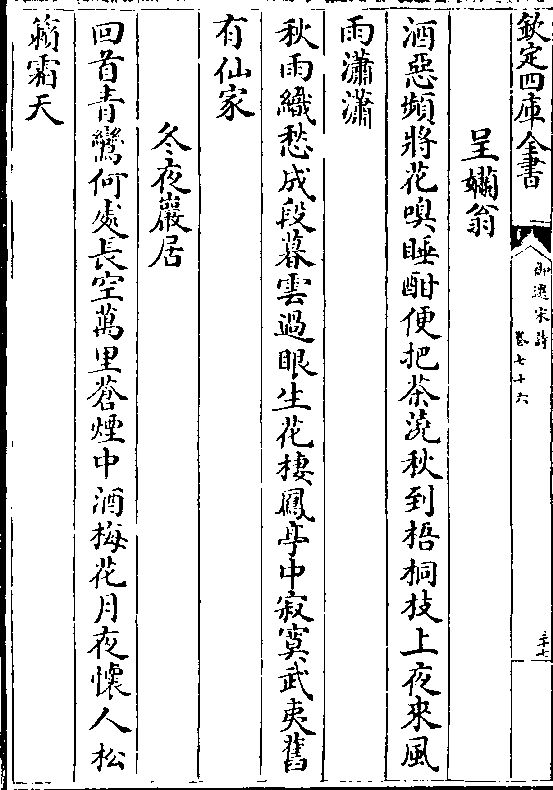 欽定四庫全書
御選宋詩
卷七十六
三十七
呈嬾翁
酒惡頻將花嗅睡酣便把茶澆秋到梧桐枝上夜來風
雨瀟瀟
秋雨織愁成段暮雲過眼生花棲鳳亭中寂寞武夷舊
有仙家
冬夜巖居
回首青鸞何處長空萬里蒼煙中酒梅花月夜懷人松
籟霜天